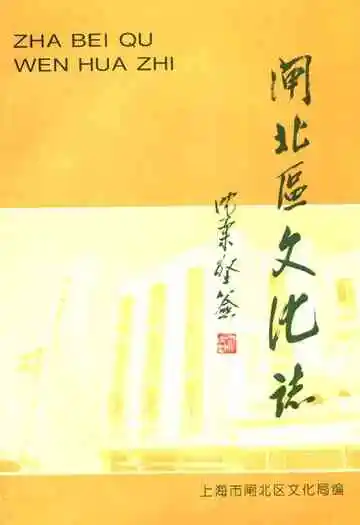 ZHA BEI QU
WEN HUA ZHI
闸北區文化誌
上海市闸北区文化局编